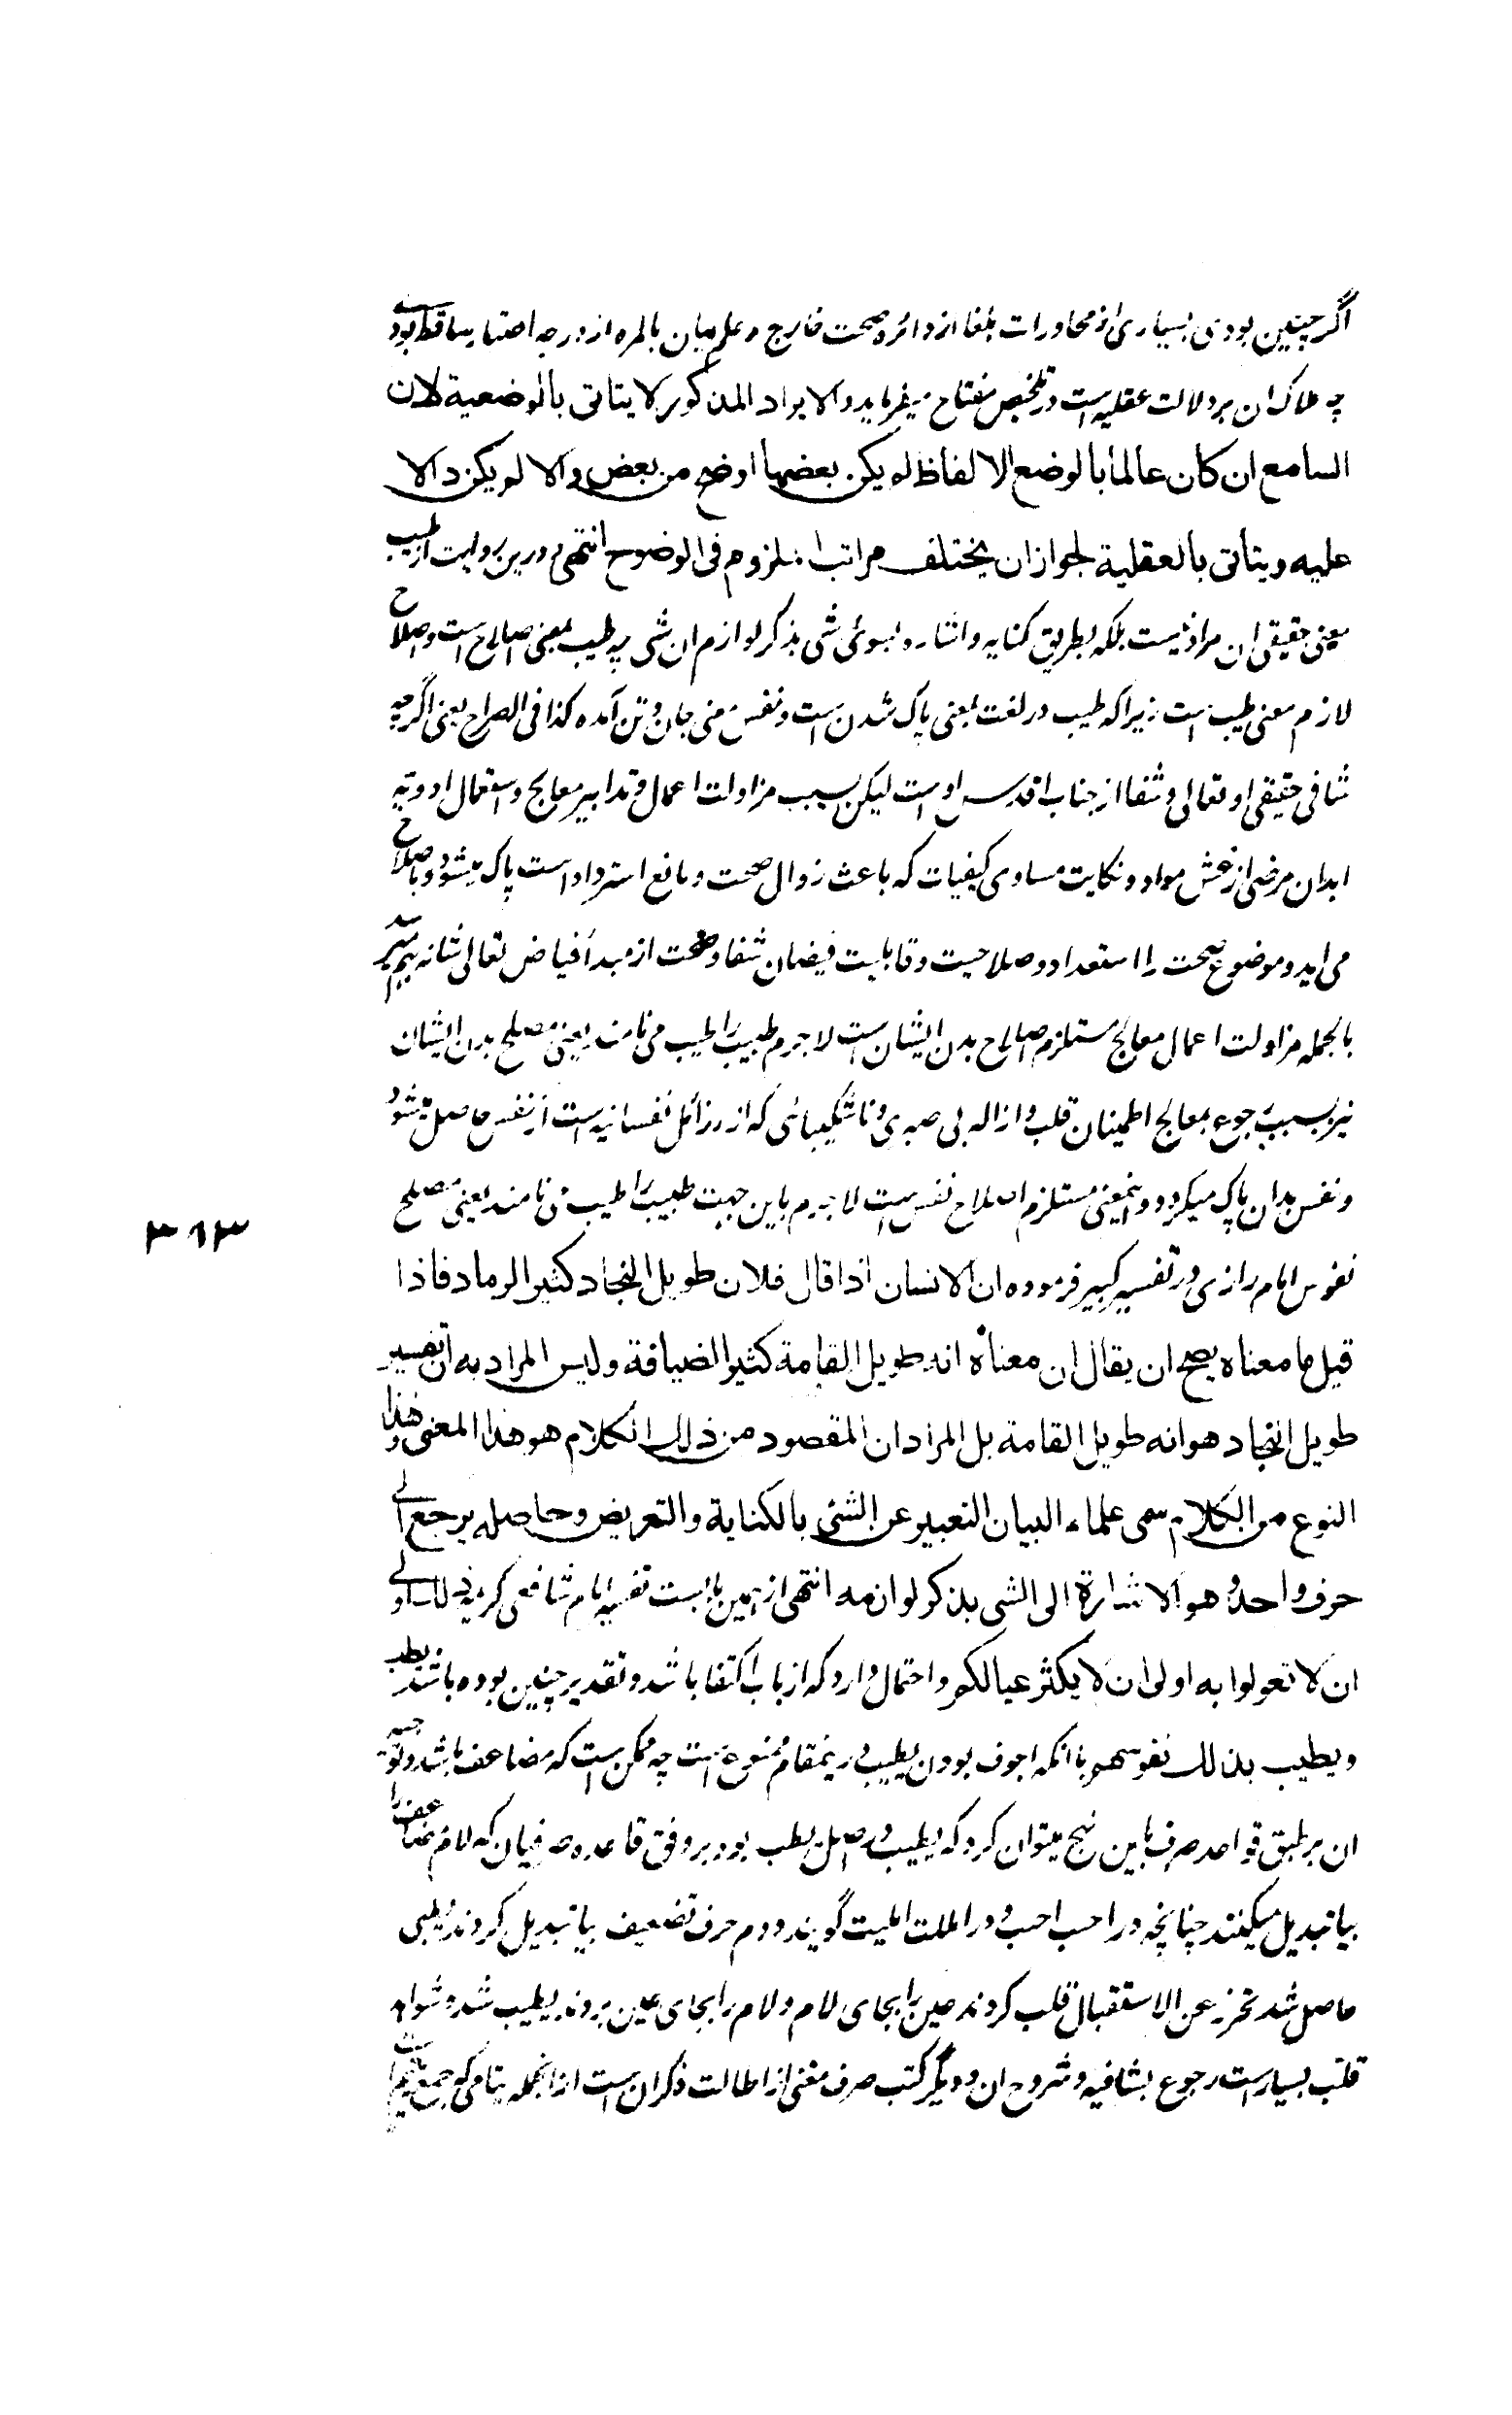 اگر چنین بودی بسیاری از محاورات بلغا از دائره صحت خارج و علم بیان بالمره از درجه اعتبار ساقط بودے
چه ملاک ان بر دلالت عقلیه است در تلخیص مفتاح میفرماید والایراد المذکور لا یتاتی بالوضعیة لان
السامع ان کان عالما بالوضع الالفاظ لم یکن بعضها اوضح من بعض والا لم یکن دالا
علیه ویتاتی بالعقلیة لجواز ان یختلف مراتب اللزوم فی الوضوح انتهی و درین روایت از طبیب
معنی حقیقی ان مراد نیست بلکه بطریق کنایه و اشاره بسوئ شی بذکر لوازم ان شی چه طیب بمعنی اصلاح است و اصلاح
لازم معنی طیب است زیرا که طیب در لغت بمعنی پاک شدن است و نفس بمعنی جان و تن آمده کذا فی الصراح یعنی اگرچه
شافی حقیقی او تعالی و شفا از جناب اقدس اوست لیکن بسبب مزاولت اعمال و تدابیر معالج و استعمال ادویه
ابدان مرضی از غش مواد و نکایت مساوی کیفیات که باعث زوال صحت و مانع استرداد است پاک میشود و باصلاح
می اید و موضوع صحت را استعداد و صلاحیت و قابلیت فیضان شفا و صحت از مبدأ فیاض تعالی شانه بهم میرسد
بالجمله مزاولت اعمال معالج مستلزم اصلاح بدن ایشان است لا جرم طبیب را طیب می نامند یعنی مصلح بدن ایشان
نیز بسبب رجوع بمعالج اطمینان قلب و ازاله بی صبری و ناشکیبائی که از رزائل نفسانیه است از نفس حاصل میشود
و نفس بدان پاک میگردد و اینمعنی مستلزم اصلاح نفس است لا جرم باین جهت طبیب را طیب می نامند یعنی مصلح
نفوس امام رازی در تفسیر کبیر فرموده ان الانسان اذا قال فلان طویل النجاد کثیر الرماد فاذا
قیل ما معناه یصح ان یقال ان معناه انه طویل القامة کثیر الضیافة ولیس المراد به ان تفسیر
طویل النجاد هو انه طویل القامة بل المراد ان المقصود من ذلک الکلام هو هذا المعنی وهذا
النوع من الکلام سمی علماء البیان التعبیر عن الشئی بالکنایة والتعریض وحاصله یرجع الے
حرف واحد وهو الاشارة الی الشی بذکر لوازمه انتهی از همین باب است تفسیر امام شافعی کریمه ذلک ادنے
ان لا تعولوا به اولی ان لا یکثر عیالکم و احتمال دارد که از باب اکتفا باشد و تقدیر چنین بوده باشد یطب
ویطیب بذلک نفوسهم با انکه اجوف بودن یطیب درینمقام ممنوع است چه ممکن است که مضاعف باشد و توجیه
ان بر طبق قواعد صرف باین نهج میتوان کرد که یطیب در اصل یطب بود بر وفق قاعده صرفیان که لام مضاعف را
بیا تبدیل میکنند چنانچه در احسب احسی و در امللت املیت گویند دوم حرف تضعیف بیا تبدیل کردند یطبی
حاصل شد تحرز عن الاستقبال قلب کردند عین را بجای لام و لام را بجای عین بردند یطیب شد و شواهد
قلب بسیار است رجوع بشافیه و شروح ان و دیگر کتب صرف مغنی از اطالت ذکر ان است ازانجمله یتامی که جمع یتیم است
۳۸۳